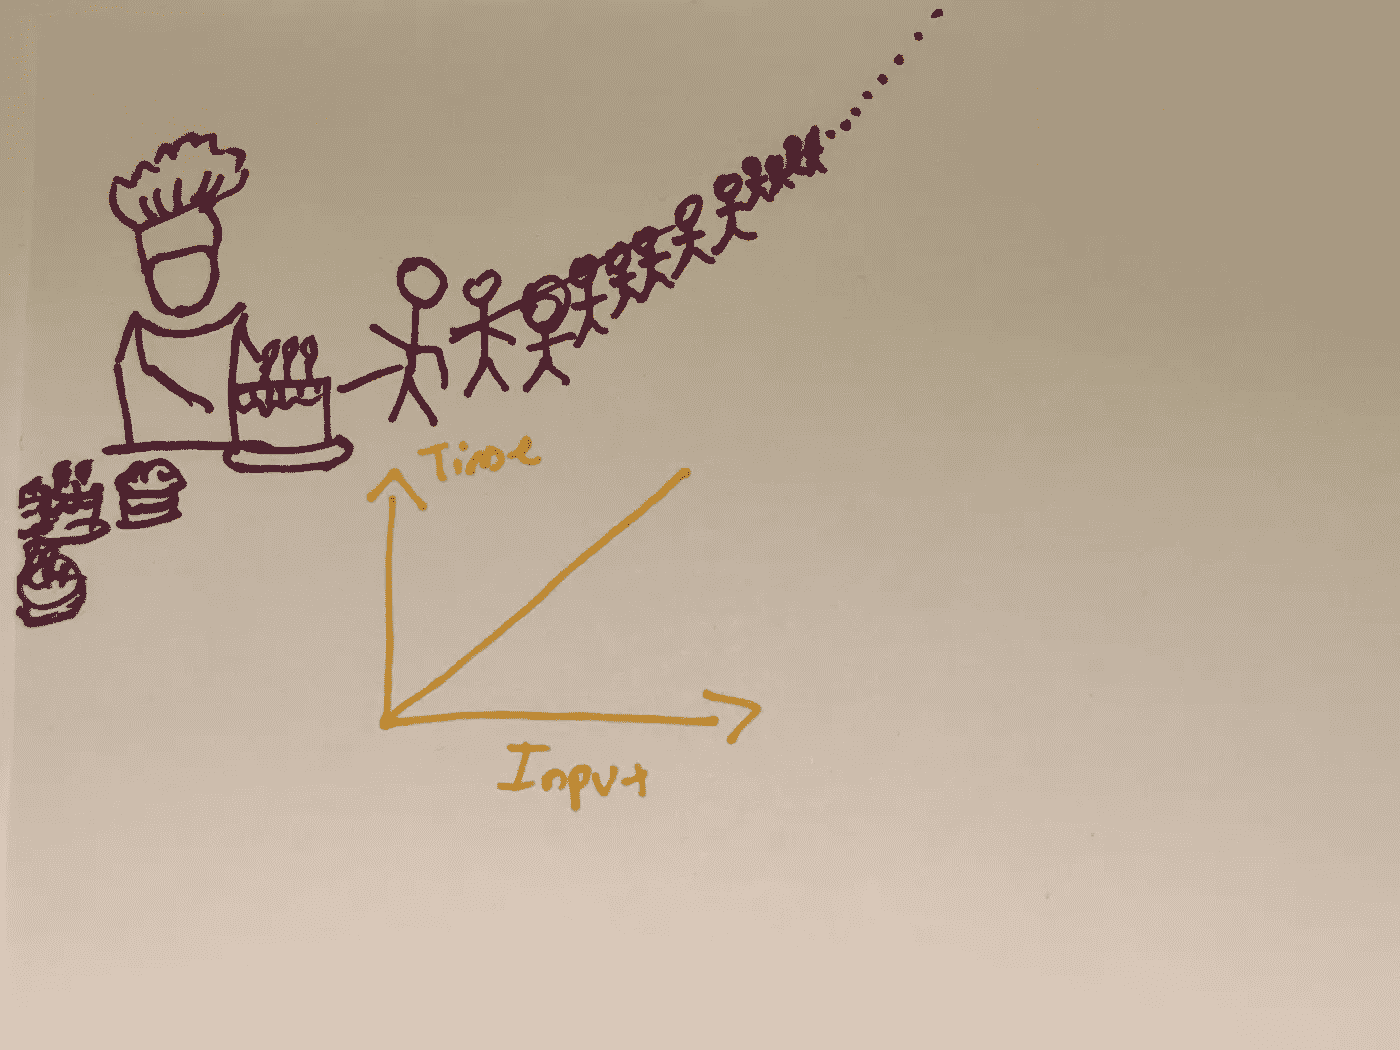 Time
Input